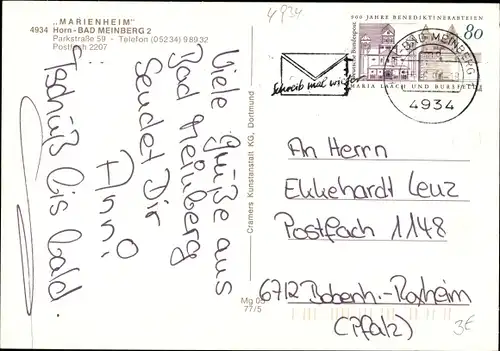 „MARIENHEIM"
4934 Horn-BAD MEINBERG 2
Parkstraße 59 - Telefon (05234) 98932
Postfach 2207
4934
900 JAHRE BENEDIKTINERABTEIEN
80
Deutsche Bundespost
MARIA LAACH UND BURSFELDE
BAD MEINBERG
4934
Schreib mal wieder
Viele Grüße aus
Bad Meinberg
Sendet Dir
Anni.
Tschüß bis bald.
Cramers Kunstanstalt KG, Dortmund
Mg 05
77/5
An Herrn
Ekkehardt Leuz
Postfach 1148
6712 Bobenh.-Roxheim
(Pfalz)
3€